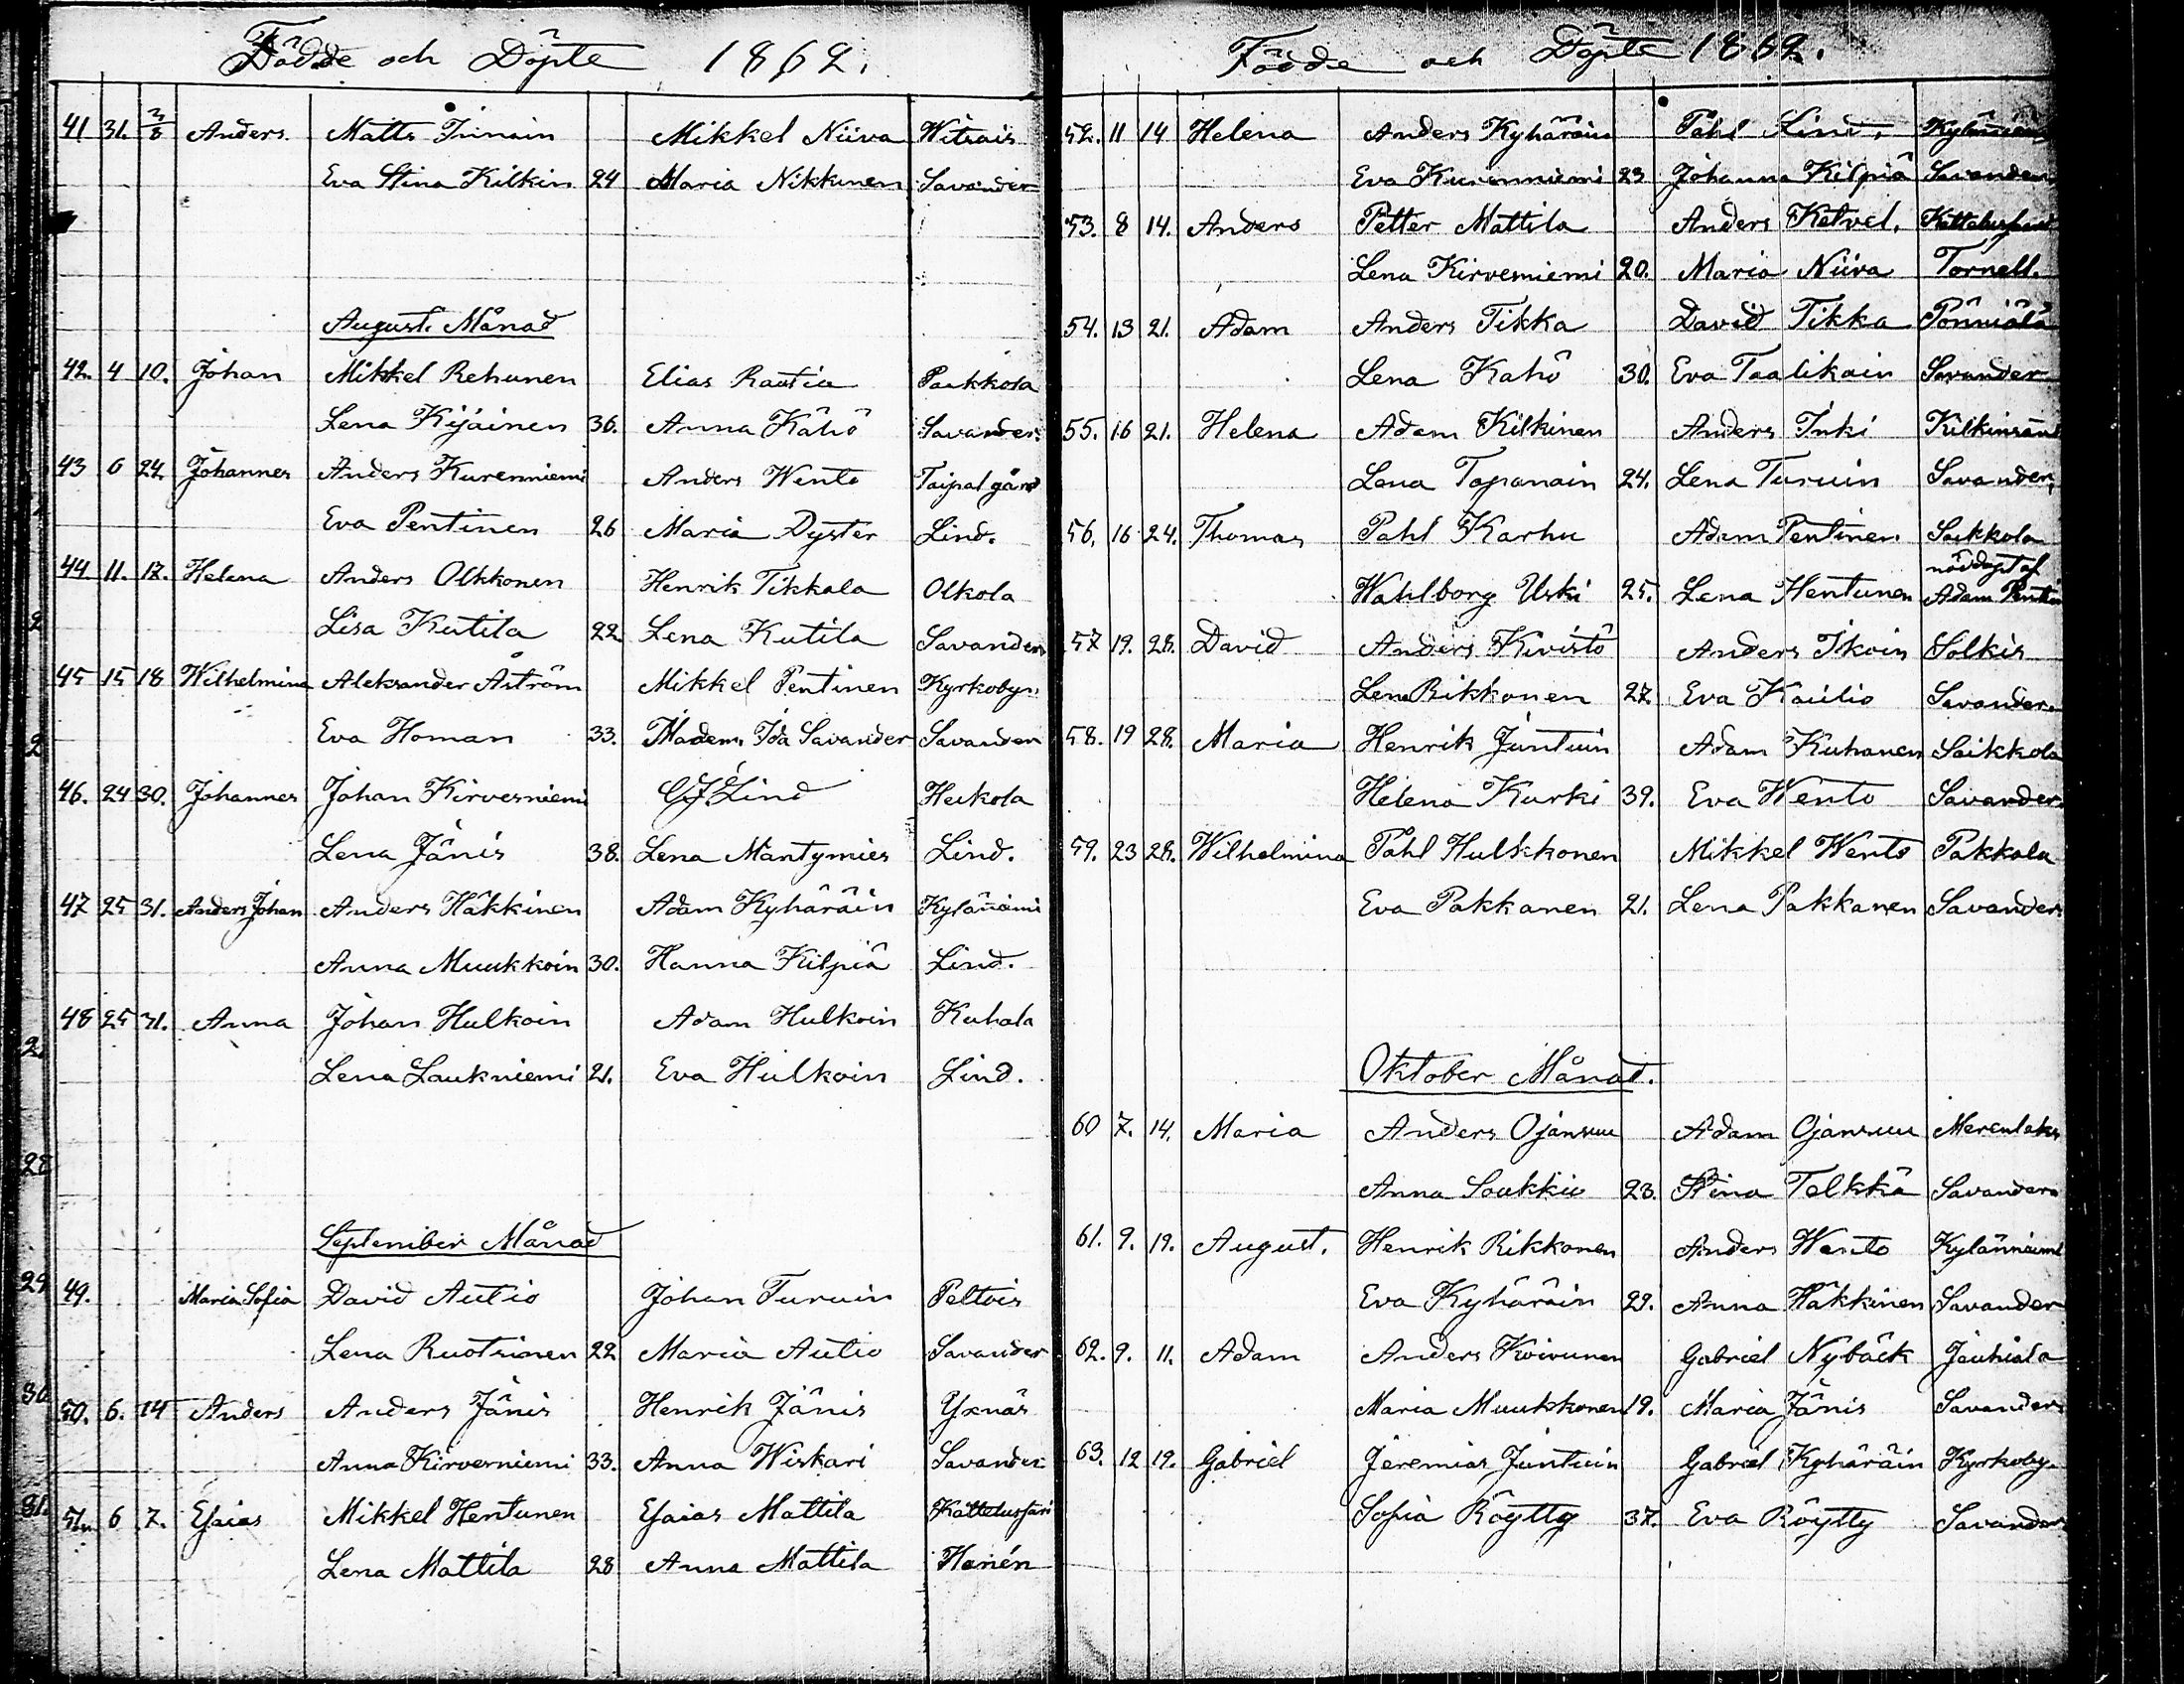 Födde och Döpte 1862.
41 31. 3/8 Anders Matts Iinnain Mikkel Niiva Witsais
Eva Stina Kilkin 24 Maria Nikkunen Savander
August. Månad
42. 4 10. Johan Mikkel Rehunen Elias Rautia Paikkola
Lena Kijäinen 36. Anna Kähö Savander.
43 6 24 Johannes Anders Kurenniemi Anders Wento Taipal gård
Eva Pentinen 26 Maria Dyster Lind.
44 11. 17. Helena Anders Olkkonen Henrik Tikkala Olkola
Lisa Kutila 22. Lena Kutila Savander
45 15 18 Wilhelmina Aleksander Åström Mikkel Pentinen Kyrkoby.
Eva Homan 33. Madem. Ida Savander Savander
46. 24 30. Johannes Johan Kirvesniemi C.J. Lind Heikola
Lena Jänis 38. Lena Mäntymies Lind.
47 25 31. Anders Johan Anders Häkkinen Adam Kyhäräin Kylänniemi
Anna Muukkoin 30. Hanna Kilpiä Lind.
48 25 31. Anna Johan Hulkoin Adam Hulkoin Kuhala
Lena Laukniemi 21. Eva Hulkoin Lind.
September Månad
49. Maria Sofia David Autio Johan Turuin Peltois
Lena Ruotsinen 22 Maria Autio Savander
50. 6. 14 Anders Anders Jänis Henrik Jänis Yxnäs
Anna Kirvesniemi 33. Anna Wiskari Savander.
51. 6 7. Esaias Mikkel Hentunen Esaias Mattila Kättelusjari
Lena Mattila 28 Anna Mattila Hanén
Födde och Döpte 1862.
52. 11 14 Helena Anders Kyhäräin Pähl Lind.
Eva Kurenniemi 23 Johanna Kilpiä Savander
53. 8 14. Anders Petter Mattila Anders Ketvel.
Lena Kirvesniemi 20. Maria Niiva Tornell.
54. 13 21. Adam Anders Tikka David Tikka Pönniälä
Lena Kähö 30. Eva Taalikain Savander
55. 16 21. Helena Adam Kilkinen Anders Inki Kilkinsäri
Lena Tapanain 24. Lena Turuin Savander.
56. 16 24. Thomas Pahl Karhu Adam Pentinen Saikkola
nöddöpt af
Wahlborg Uski 25. Lena Hentunen Adam Pentin
57 19. 28. David Anders Kivistö Anders Ikoin Solkis
Lena Rikkonen 27 Eva Kaulio Savander.
58. 19 28. Maria Henrik Juntuin Adam Kuhanen Saikkola
Helena Kurki 39. Eva Wento Savander.
59. 23 28. Wilhelmina Påhl Hulkkonen Mikkel Wento Pakkala
Eva Pakkanen 21. Lena Pakkanen Savander
Oktober Månad.
60 7. 14. Maria Anders Ojansuu Adam Ojansuu Merenlaks
Anna Soukkio 23. Stina Telkkä Savander
61. 9. 19. August. Henrik Rikkonen Anders Wento Kylänniemi
Eva Kyhäräin 29. Anna Häkkinen Savander
62. 9. 11. Adam Anders Koivunen Gabriel Nybäck Jauhiala
Maria Muukkonen 19. Maria Jänis Savander
63. 12 19. Gabriel Jeremias Juntuin Gabriel Kyhäräin Kyrkoby.
Sofia Röytty 37. Eva Röytty Savander